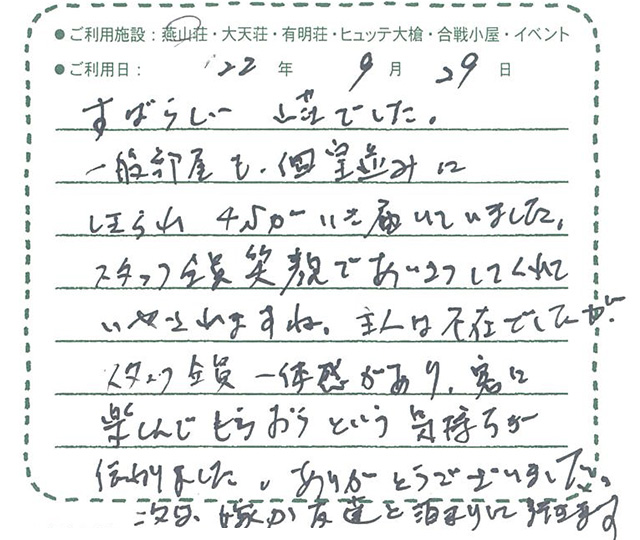 ●ご利用施設：燕山荘・大天荘・有明荘・ヒュッテ大槍・合戦小屋・イベント
●ご利用日： '22 年 9 月 29 日
すばらしい 山荘でした。
一般部屋も、個室並みに
しきられ 手入が いき届いていました。
スタッフ全員笑顔であいさつしてくれて
いやされますね。主人は不在でしたが、
スタッフ全員一体感があり、客に
楽しんでもらおうという気持ちが
伝わりました。ありがとうございました。
次は、嫁か友達と泊まりに来ます